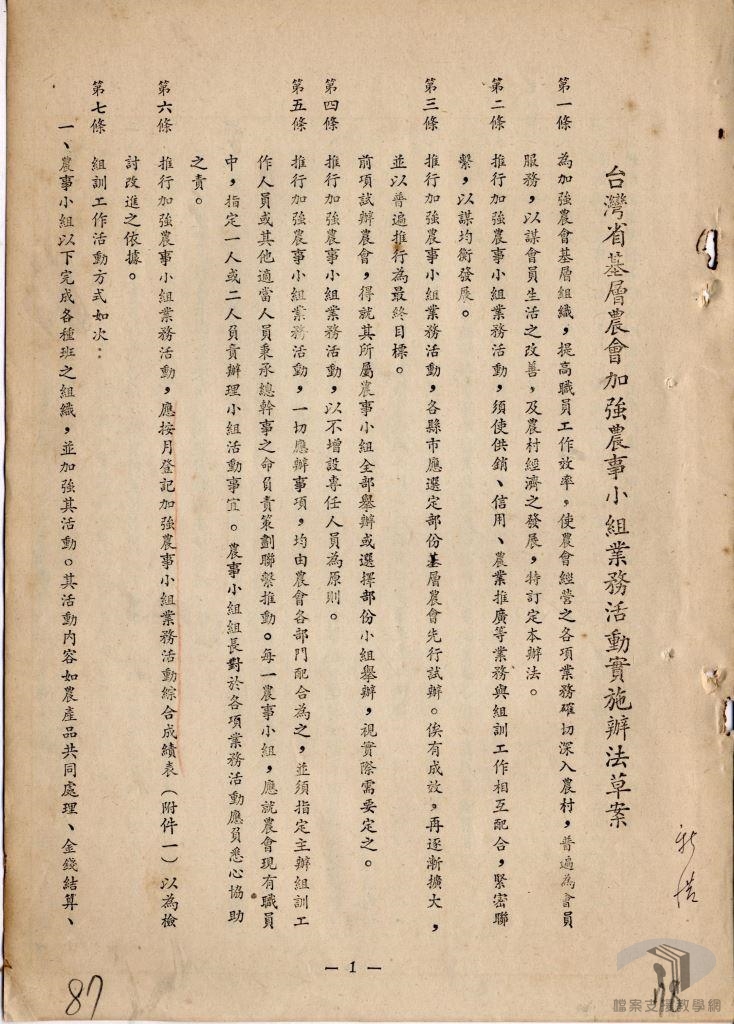 台灣省基層農會加強農事小組業務活動實施辦法草案
第一條　為加強農會基層組織，提高職員工作效率，使農會經營之各項業務確切深入農村，普遍為會員
服務，以謀會員生活之改善，及農村經濟之發展，特訂定本辦法。
第二條　推行加強農事小組業務活動，須使供銷、信用、農業推廣等業務與組訓工作相互配合，緊密聯
繫，以謀均衡發展。
第三條　推行加強農事小組業務活動，各縣市應選定部份基層農會先行試辦。俟有成效，再逐漸擴大，
並以普遍推行為最終目標。
前項試辦農會，得就其所屬農事小組全部舉辦或選擇部份小組舉辦，視實際需要定之。
第四條　推行加強農事小組業務活動，以不增設專任人員為原則。
第五條　推行加強農事小組業務活動，一切應辦事項，均由農會各部門配合為之，並須指定主辦組訓工
作人員或其他適當人員秉承總幹事之命負責策劃聯繫推動。每一農事小組，應就農會現有職員
中，指定一人或二人負責辦理小組活動事宜。農事小組組長對於各項業務活動應負悉心協助
之責。
第六條　推行加強農事小組業務活動，應按月登記加強農事小組業務活動綜合成績表（附件一）以為檢
討改進之依據。
第七條　組訓工作活動方式如次：
一、農事小組以下完成各種班之組織，並加強其活動。其活動內容如農產品共同處理、金錢結算、
— 1 —
87
檔案支援教學網